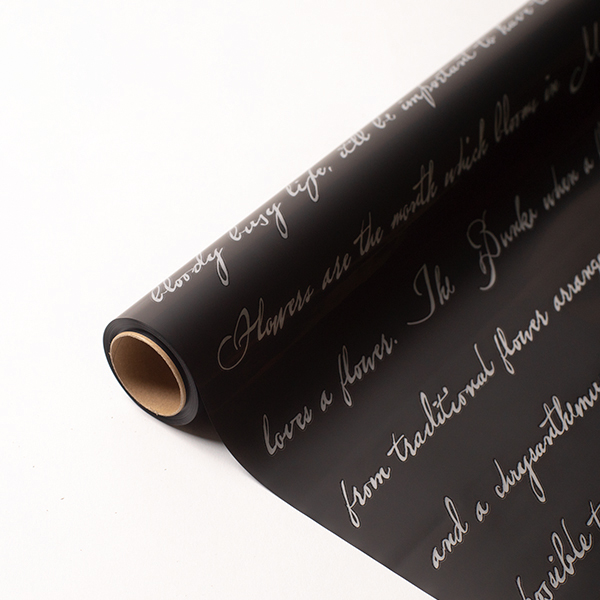 bloody busy life, it'll be important to have
Flowers are the month which blooms in
loves a flower. The Bunke when a
from traditional flower arrange
and a chrysanthemu
possible t